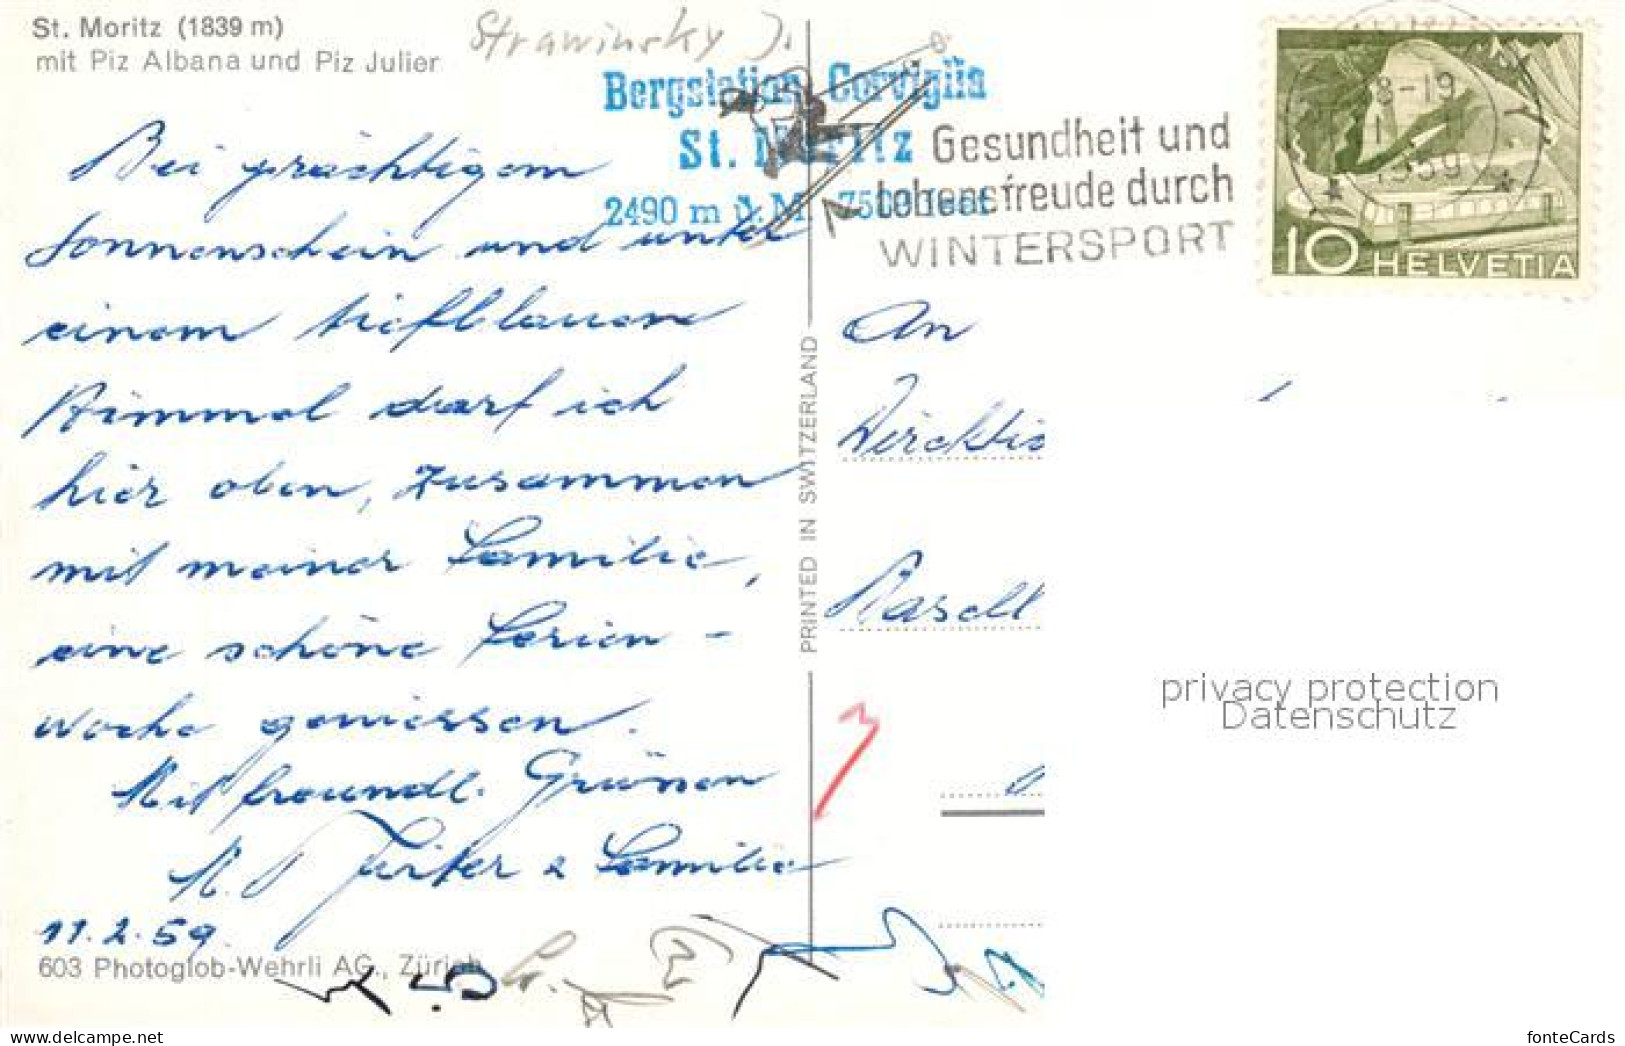 St. Moritz (1839 m)
mit Piz Albana und Piz Julier
Strawinsky J.
Bergstation Corviglia
St. Moritz
2490 m ü. M. 7500 feet
Gesundheit und
Lebensfreude durch
WINTERSPORT
18-19
1959
10 HELVETIA
Bei prächtigem
Sonnenschein und unter
einem tiefblauen
Himmel darf ich
hier oben, zusammen
mit meiner Familie,
eine schöne Ferien-
woche geniessen.
Mit freundl. Grüssen
& Familie
11.2.59.
603 Photoglob-Wehrli AG., Zürich
PRINTED IN SWITZERLAND
An
privacy protection
Datenschutz
fonteCards